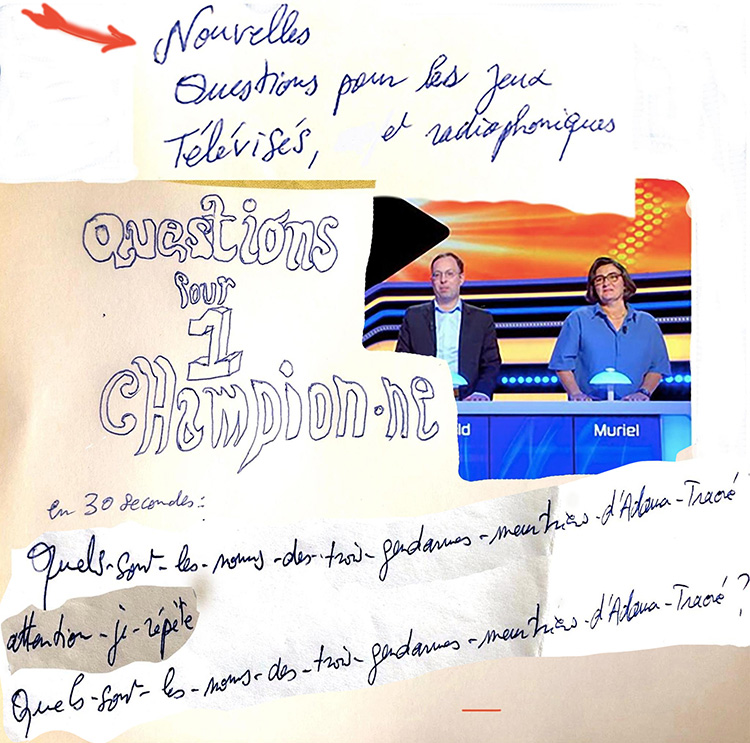 Nouvelles
Questions pour les jeux
Télévisés, et radiophoniques
Questions
Pour
1
CHampion·ne
ld
Muriel
en 30 secondes:
Quels-sont-les-noms-des-trois-gendarmes-meurtriers-d'Adama-Traoré
attention-je-répète
Quels-sont-les-noms-des-trois-gendarmes-meurtriers-d'Adama-Traoré?